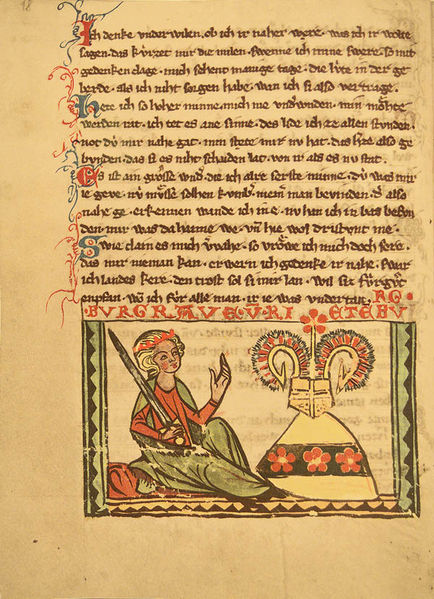 18
Ich denke vnder wilen. ob ich ir naher were. was ich ir wolte
sagen. das kvrzet mir die milen. swenne ich ir mine swere. so mit
gedenken clage. mich sehent manige tage. die lvte in der ge
berde. als ich niht sorgen habe. wan ich si also vertrage.
Hete ich so hoher minne. mich nie vnderwnden. min möhte
werden rat. ich tet es ane sinne. des lide ich ze allen stunden.
not dv́ mir nahe gat. min stete mir nv hat. das h̾ze also ge
bvnden. das si es niht schaiden lat. von ir als es nv stat.
Es ist ain grosse wnd̾. die ich alre serste minne. dv́ was mir
ie geve. nv mv́sse solhen kvmb̾. niem̾ man bevinden. d̾ also
nahe ge. erkennen wande ich in e. nv han ich in bas befvn
den mir was da haime we. vn̄ hie wol dristvnt me.
Swie clain es mich v̾vahe. so vröwe ich mich doch sere.
das mir nieman kan. erwern ich gedenke ir nahe. swar
ich landes kere. den trost sol si mir lan. wil sis fv́r gv̊t
enpfan. ich fv́r alle man. ir ie was vnder tan. RG·
BVRGRAVE·V·RIETEBV